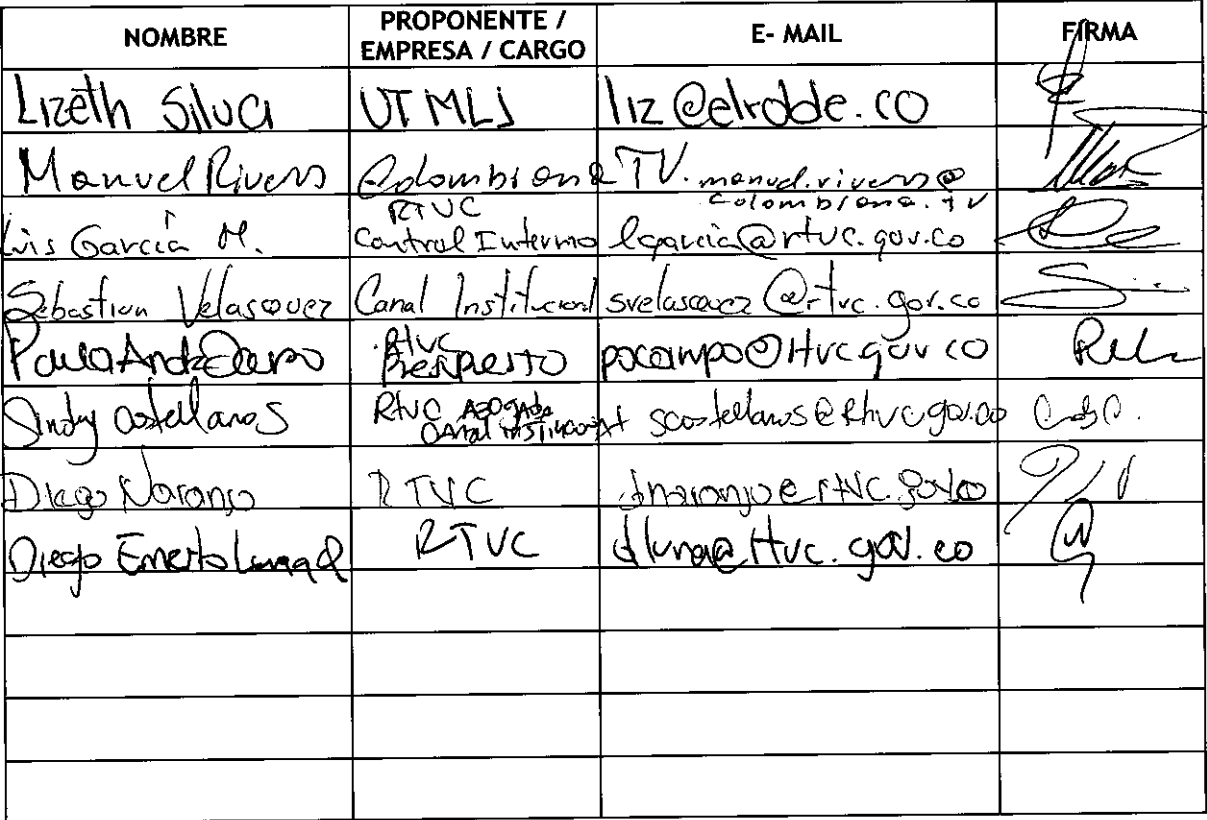 NOMBRE PROPONENTE / EMPRESA / CARGO E- MAIL FIRMA
Lizeth Silva UTMLJ liz@elrodde.co
Manuel Rivera Colombiana TV. manuel.rivera@colombiana.tv
Luis García M. RTVC Control Interno lgarcia@rtvc.gov.co
Sebastian Velasquez Canal Institucional svelasquez@rtvc.gov.co
Paula Andrea Ocampo Rtvc Presupuesto pocampo@rtvc.gov.co
Sindy Castellanos RTVC ABOGADA CANAL INSTITUCIONAL scastellanos@rtvc.gov.co
Diego Naranjo RTVC dnaranjo@rtvc.gov.co
Diego Ernesto Luna Q RTVC dluna@rtvc.gov.co